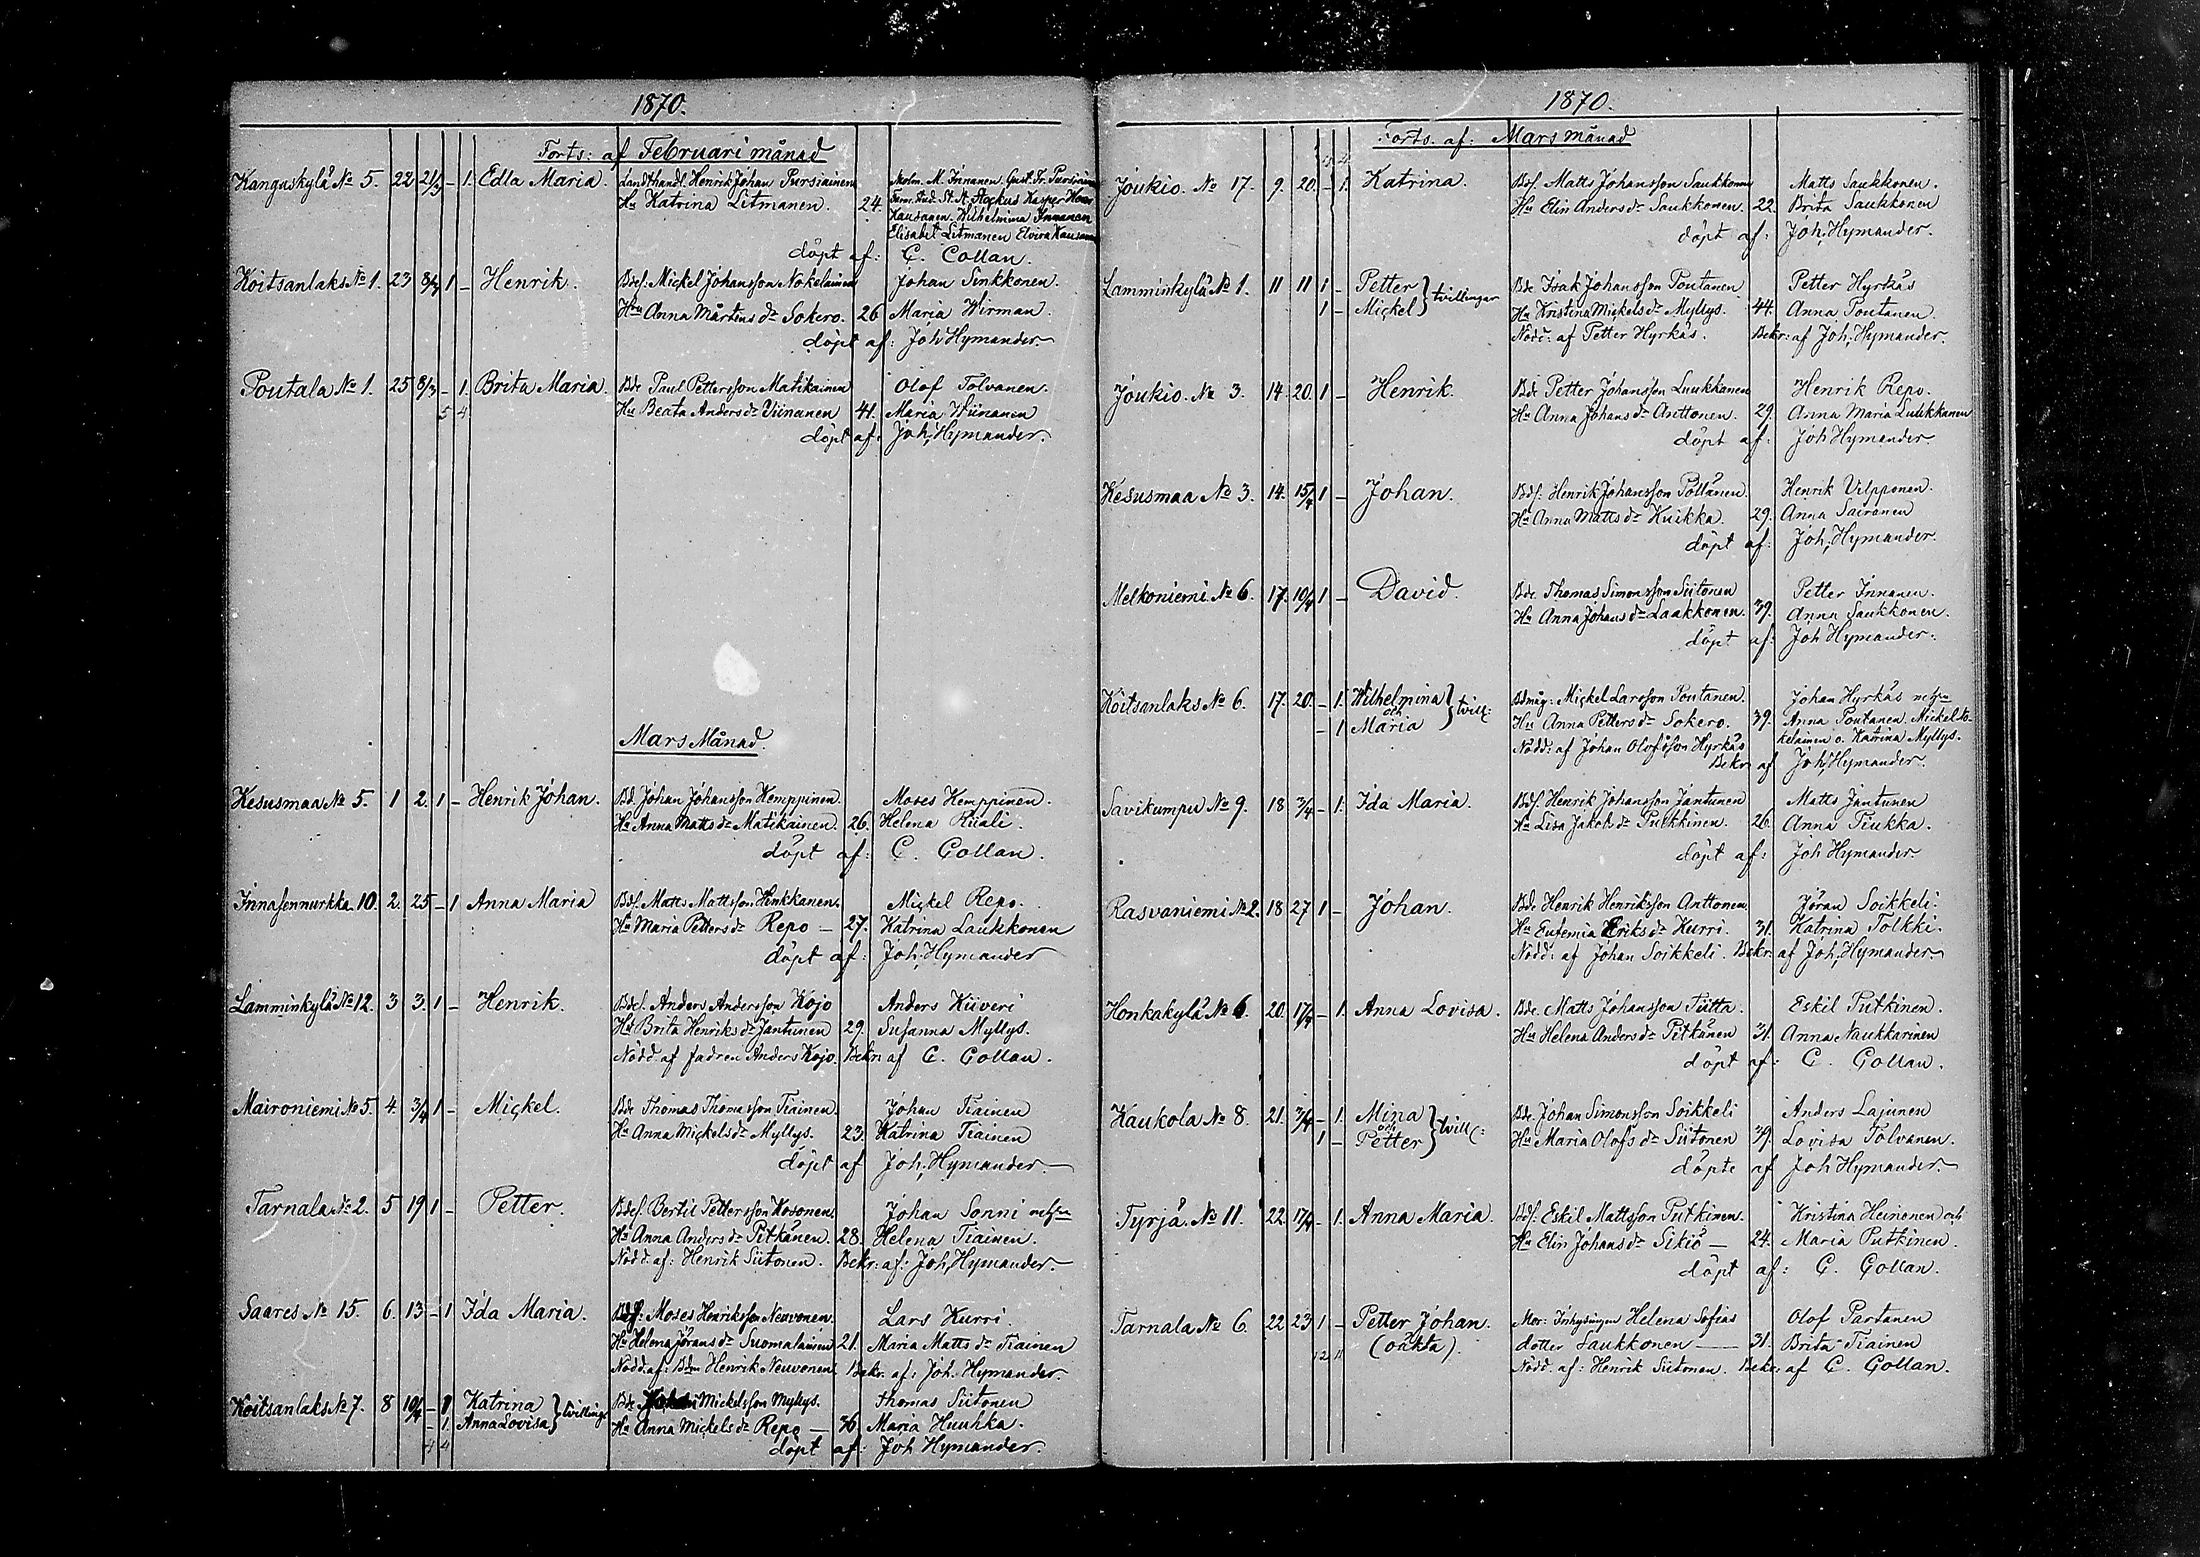 1870.
Forts: af Februari månad
Kanguskylä No 5. 22 21/3 - 1. Edla Maria. Landthandl. Henrik Johan Pursiainen
Hu Katrina Litmanen. 24. Kausanen Wilhelmina Innanen
Elisabet Litmanen Elvira
döpt af: C. Collan.
Koitsanlaks No 1. 23 8/3 1 - Henrik. Bdes. Mickel Johansson Nokelainen Johan Sinkkonen.
Hu Anna Mårtens dr Sokero. 26 Maria Wirman.
döpt af: Joh. Hymander.
Poutala No 1. 25 8/3 - 1. Brita Maria. Bde Paul Pettersson Matikainen Olof Tolvanen.
5 4 Hu Beata Anders dr Viinanen 41. Maria Wiinanen
döpt af: Joh. Hymander.
Mars Månad.
Kesusmaa No 5. 1 2. 1 - Henrik Johan. Bd. Johan Johansson Kemppinen. Moses Kemppinen.
Hu Anna Matts dr Matikainen. 26. Helena Riiali.
döpt af: C. Collan.
Innasennurkka 10. 2. 25 - 1 Anna Maria Bds. Matts Mattsson Henkkanen. Mickel Repo.
Hu Maria Petters dr Repo - 27. Katrina Laukkonen
döpt af: Joh. Hymander
Lamminkylä No 12. 3 3. 1 - Henrik. Bdes. Anders Andersson Kojo Anders Kiiveri
Hu Brita Henriks dr Jantunen 29. Susanna Myllys.
Nödd. af fadren Anders Kojo. Bekr. af C. Collan.
Maironiemi No 5. 4. 3/4 1 - Mickel. Bde Thomas Thomasson Tiainen. Johan Tiainen
Hu Anna Mickels dr Myllys. 23. Katrina Tiainen
döpt af Joh. Hymander.
Tarnala No 2. 5 19 1 - Petter. Bdes. Bertil Pettersson Kosonen. Johan Sonni
Hu Anna Anders dr Pitkänen. 28. Helena Tiainen.
Nödd. af: Henrik Siitonen. Bekr. af: Joh. Hymander.
Saares No 15. 6. 13 - 1 Ida Maria. Bds: Moses Henriksson Neuvonen. Lars Kurri.
Hu Helena Jörans dr Suomalainen 21. Maria Matts dr Tiainen
Nödd. af: Bdn Henrik Neuvonen. Bekr. af: Joh. Hymander.
Koitsanlaks No 7. 8 10/4 - 1 Katrina } tvillingar Bde Mickelsson Myllys. Thomas Siitonen
- 1. Anna Lovisa Hu Anna Mickels dr Repo - 36. Maria Huuhka.
4 4 döpt af: Joh Hymander.
1870.
Forts. af: Mars månad
Joukio. No 17. 9. 20. - 1. Katrina. Bds. Matts Johansson Saukkonen Matts Saukkonen.
Hu Elin Anders dr Saukkonen. 22. Brita Saukkonen
döpt af: Joh. Hymander.
Lamminkylä No 1. 11 11 1 - Petter } tvillingar Bde Isak Johansson Pontanen Petter Hyrkäs
1 - Mickel Hu Kristina Mickels dr Myllys. 44. Anna Pontanen.
Nödd: af Petter Hyrkäs. Bekr: af Joh. Hymander.
Joukio. No 3. 14. 20. 1 - Henrik. Bde Petter Johansson Luukkanen Henrik Repo.
Hu Anna Johans dr Anttonen. 29. Anna Maria Luukkanen
döpt af: Joh Hymander.
Kesusmaa No 3. 14. 15/4 1 - Johan. Bds: Henrik Johansson Pöllänen. Henrik Vilpponen.
Hu Anna Matts dr Kuikka. 29. Anna Sairanen
döpt af: Joh. Hymander.
Melkoniemi No 6. 17. 10/4 1 - David. Bde. Thomas Simonsson Siitonen Petter Innanen.
Hu Anna Johans dr Laakkonen. 39. Anna Saukkonen.
döpt af: Joh Hymander.
Koitsanlaks No 6. 17. 20. - 1. Wilhelmina } tvill: Bdmåg: Mickel Larsson Pontanen. Johan Hyrkäs
och
- 1 Maria Hu Anna Petters dr Sokero. 39. Anna Pontanen. Mickel No-
Nödd: af Johan Olofsson Hyrkäs kelainen o. Katrina Myllys.
Bekr. af Joh. Hymander.
Savikumpu No 9. 18 3/4 - 1. Ida Maria. Bds. Henrik Johansson Jantunen Matts Jantunen
Hu Lisa Jakobs dr Putkkinen. 26. Anna Tiukka.
döpt af: Joh Hymander.
Rasvaniemi No 2. 18 27 1 - Johan. Bde Henrik Henriksson Anttonen. Jöran Soikkeli.
Hu Eufemia Eriks dr Kurri. 31. Katrina Tolkki.
Nödd: af Johan Soikkeli. Bekr. af Joh. Hymander.
Honkakylä No 6. 20. 17/4 - 1. Anna Lovisa. Bde. Matts Johansson Tiitta. Eskil Putkinen.
Hu Helena Anders dr Pitkänen 31. Anna Naukkarinen
döpt af: C. Collan.
Kaukola No 8. 21. 3/4 - 1. Mina } tvill: Bde. Johan Simonsson Soikkeli Anders Lajunen
och
1 - Petter Hu Maria Olofs dr Siitonen 39. Lovisa Tolvanen.
döpte af Joh Hymander.
Tyrjä. No 11. 22. 17/4 - 1. Anna Maria. Bds. Eskil Mattsson Putkinen. Kristina Heinonen och
Hu Elin Johans dr Sikiö - 24. Maria Putkinen.
döpt af: C. Collan.
Tarnala No 6. 22 23. 1 - Petter Johan. Mor: Inhysingen Helena Sofias Olof Partanen
(oäkta). dotter Saukkonen - 31. Brita Tiainen
12 11 Nödd. af: Henrik Siitonen. Bekr. af C. Collan.